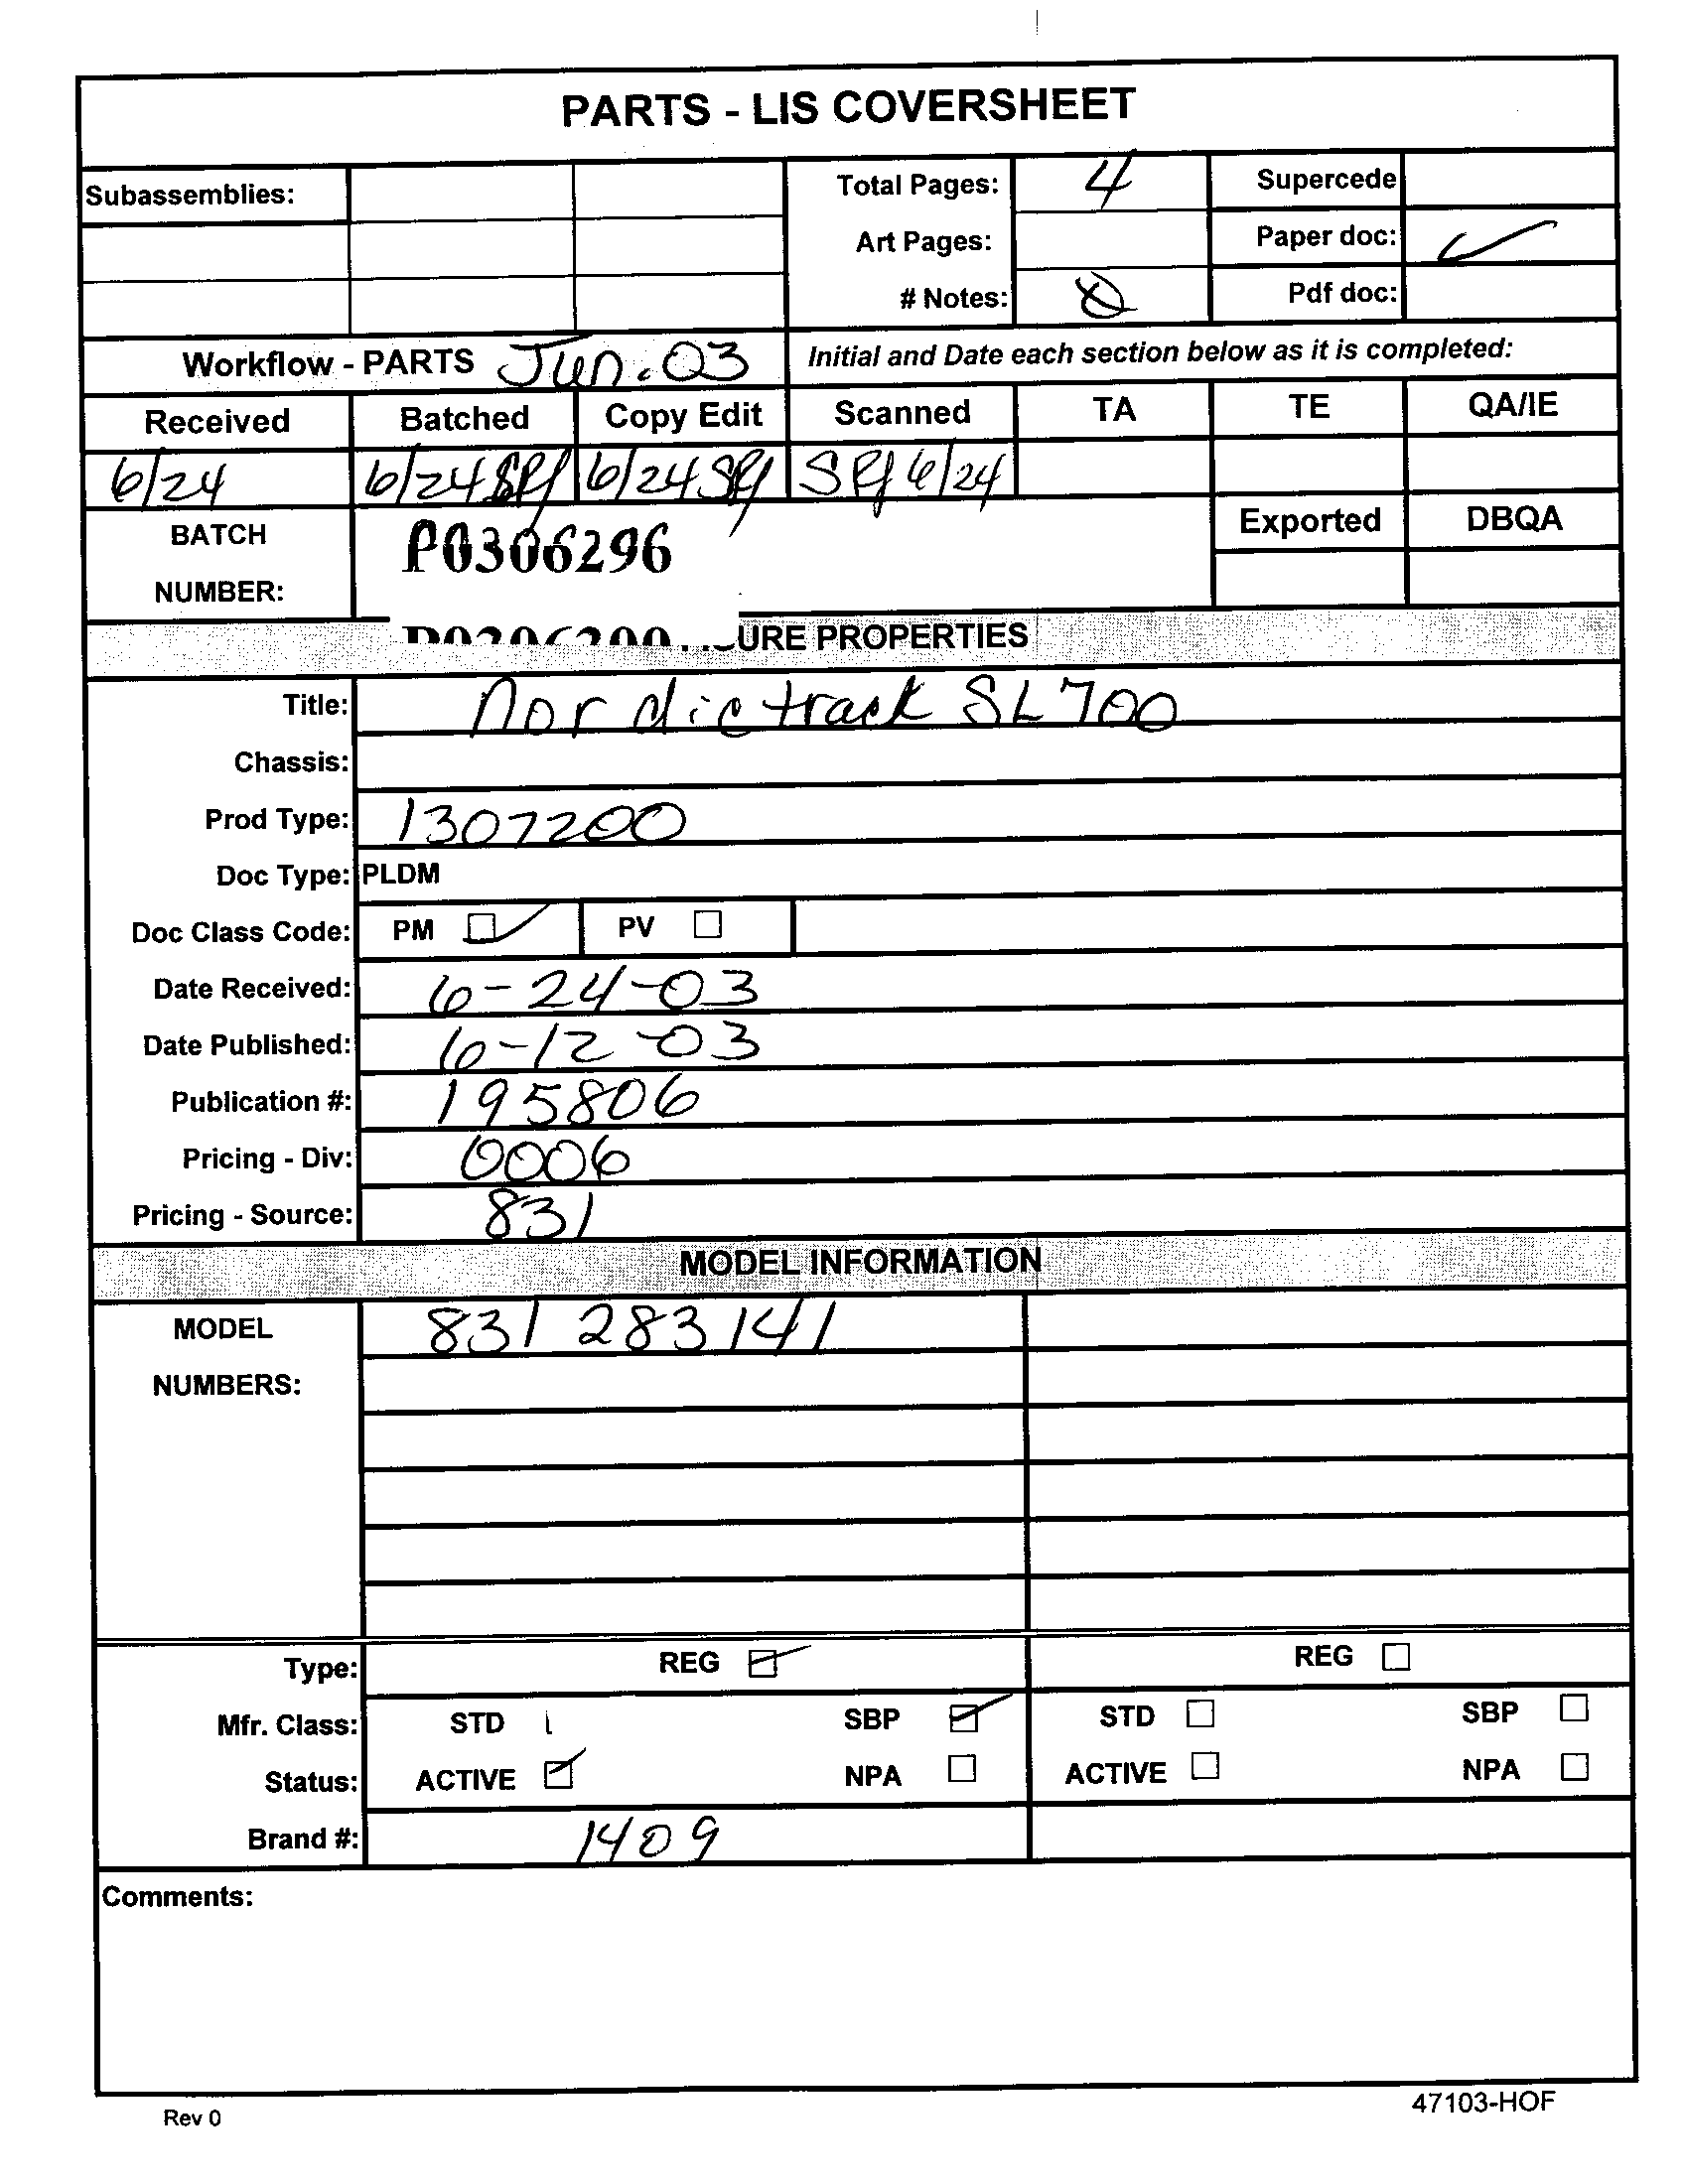 PARTS - LIS COVERSHEET
Subassemblies:
Total Pages: 4
Supercede
Art Pages:
Paper doc:
# Notes:
Pdf doc:
Workflow - PARTS Jun. 03
Initial and Date each section below as it is completed:
Received Batched Copy Edit Scanned TA TE QA/IE
6/24 6/24 6/24 6/24
BATCH
NUMBER:
P0306296
Exported DBQA
URE PROPERTIES
Title: Nordictrack SL 700
Chassis:
Prod Type: 1307200
Doc Type: PLDM
Doc Class Code: PM PV
Date Received: 6-24-03
Date Published: 6-12-03
Publication #: 195806
Pricing - Div: 0006
Pricing - Source: 831
MODEL INFORMATION
MODEL
NUMBERS:
831 283141
Type: REG REG
Mfr. Class: STD SBP STD SBP
Status: ACTIVE NPA ACTIVE NPA
Brand #: 1409
Comments:
Rev 0
47103-HOF